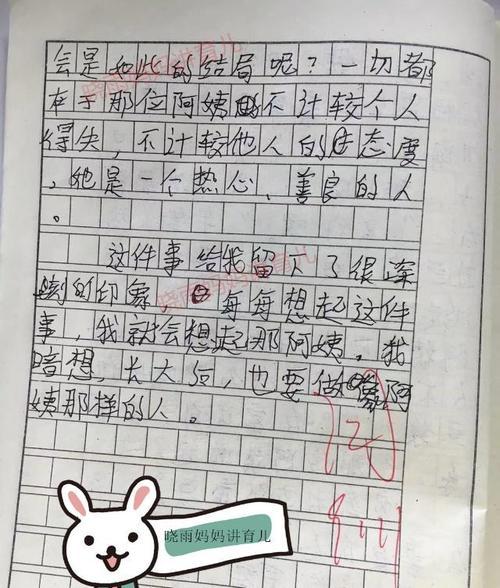 会是如此的结局呢？一切都
在于那位阿姨的不计较个人
得失，不计较他人的态度
，她是一个热心、善良的人
。
这件事给我留下了很深
刻的印象。每每想起这件
事，我就会想起那阿姨，我
暗想，长大后，也要做像阿
姨那样的人。
晓雨妈妈讲育儿
晓雨妈妈讲育儿
晓雨妈妈讲育儿